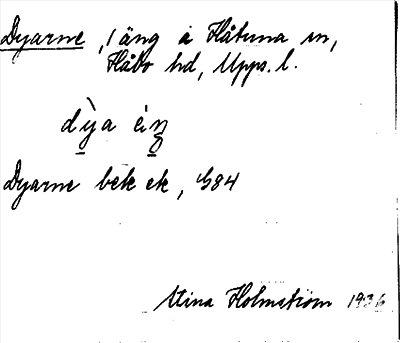 Dyarne, 1 äng å Håtuna sn,
Håbo hd, Upps. l.
dỳ̱a ei
Dyarne bek ek, G84
Stina Holmström 1936